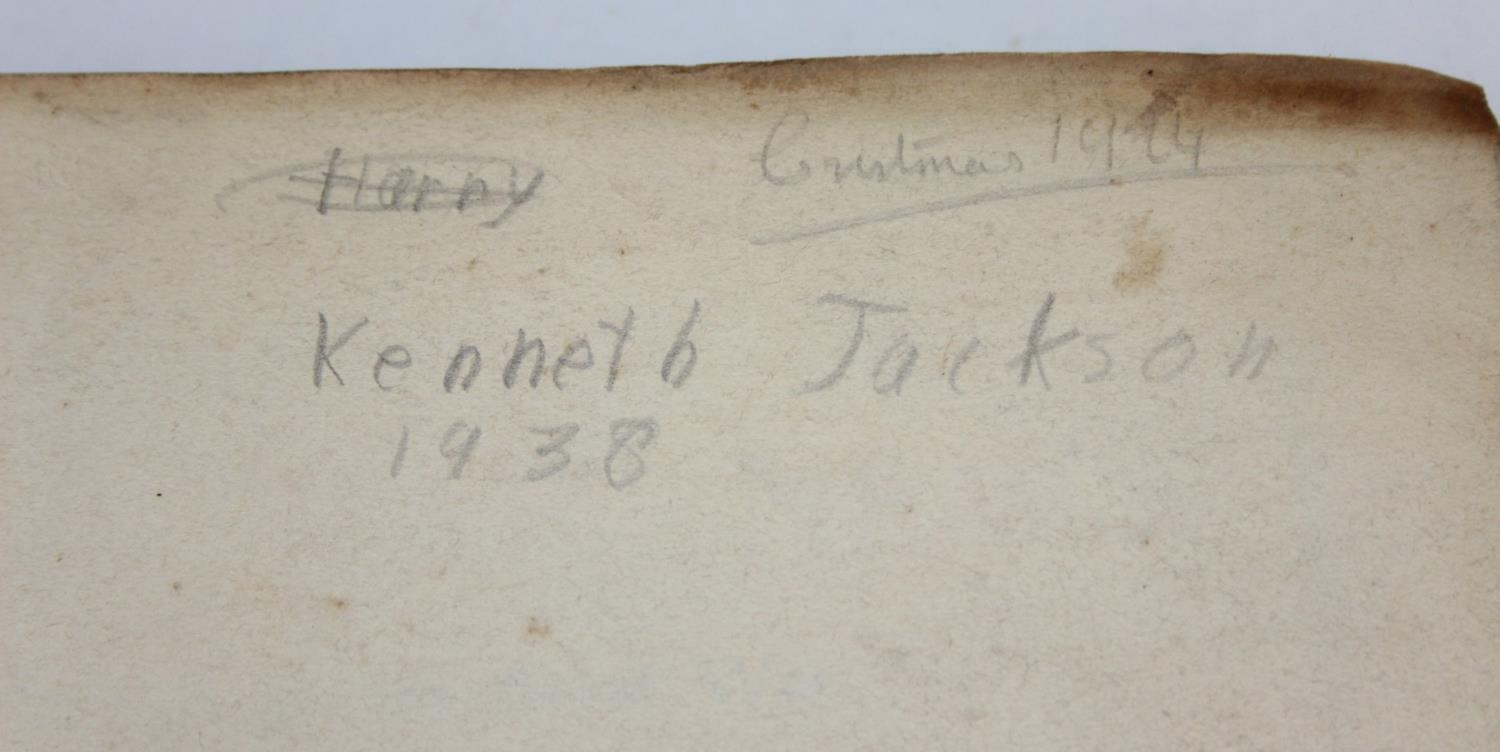 Harry Cristmas 1924
Kenneth Jackson
1938